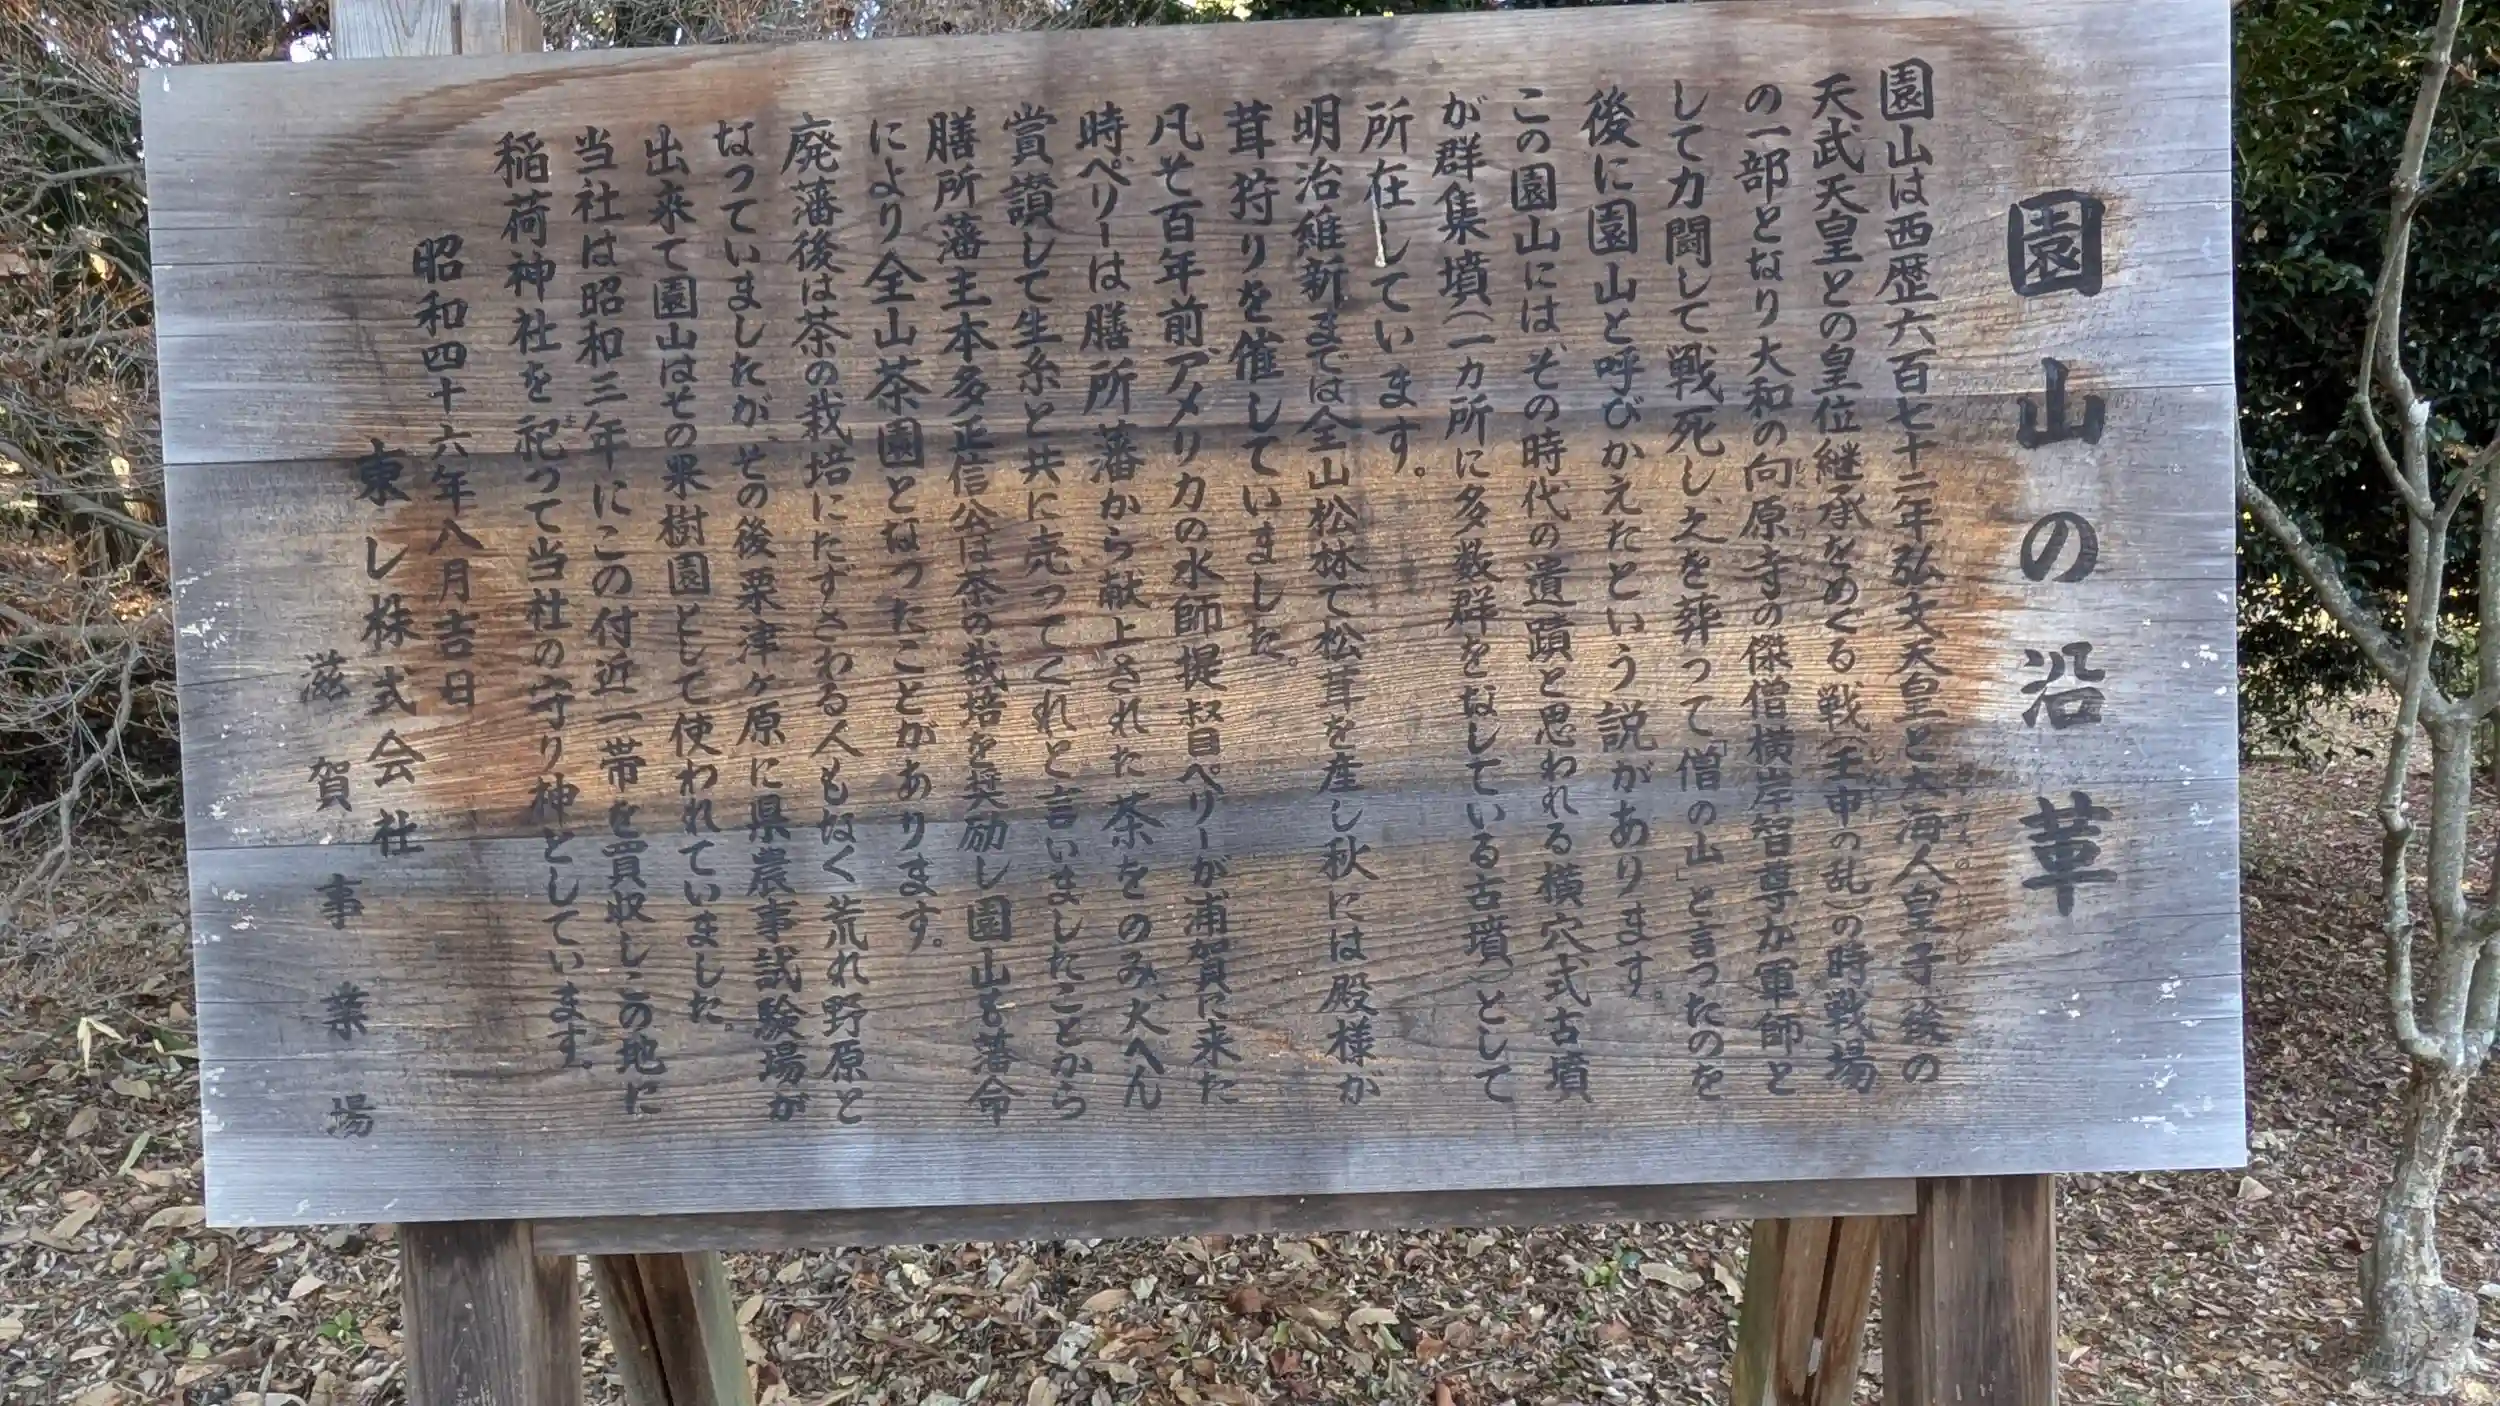 園山の沿革
園山は西歴六百七十二年弘文天皇と大海人皇子後の
天武天皇との皇位継承をめぐる戦(壬申の乱)の時戦場
の一部となり大和の向原寺の傑僧横岸智尊が軍師と
して力闘して戦死し、之を葬って「僧の山」と言ったのを
後に園山と呼びかえたという説があります。
この園山には、その時代の遺蹟と思われる横穴式古墳
が群集墳(一カ所に多数群をなしている古墳)として
所在しています。
明治維新までは全山松林で松茸を産し秋には殿様が
茸狩りを催していました。
凡そ百年前アメリカの水師提叔目ペリーが浦賀に来た
時ペリーは膳所藩から献上された茶をのみ大へん
賞讃して生糸と共に売ってくれと言いましたことから
膳所藩主本多正信公は茶の栽培を奨励し園山も藩命
により全山茶園となったことがあります。
廃藩後は茶の栽培にたずさわる人もなく荒れ野原と
なっていましたが、その後粟津ヶ原に県農事試験場が
出来て園山はその果樹園として使われていました。
当社は昭和三年にこの付近一帯を買収しこの地に
稲荷神社を祀って当社の守り神としています。
昭和四十六年八月吉日
東レ株式会社
滋賀事業場